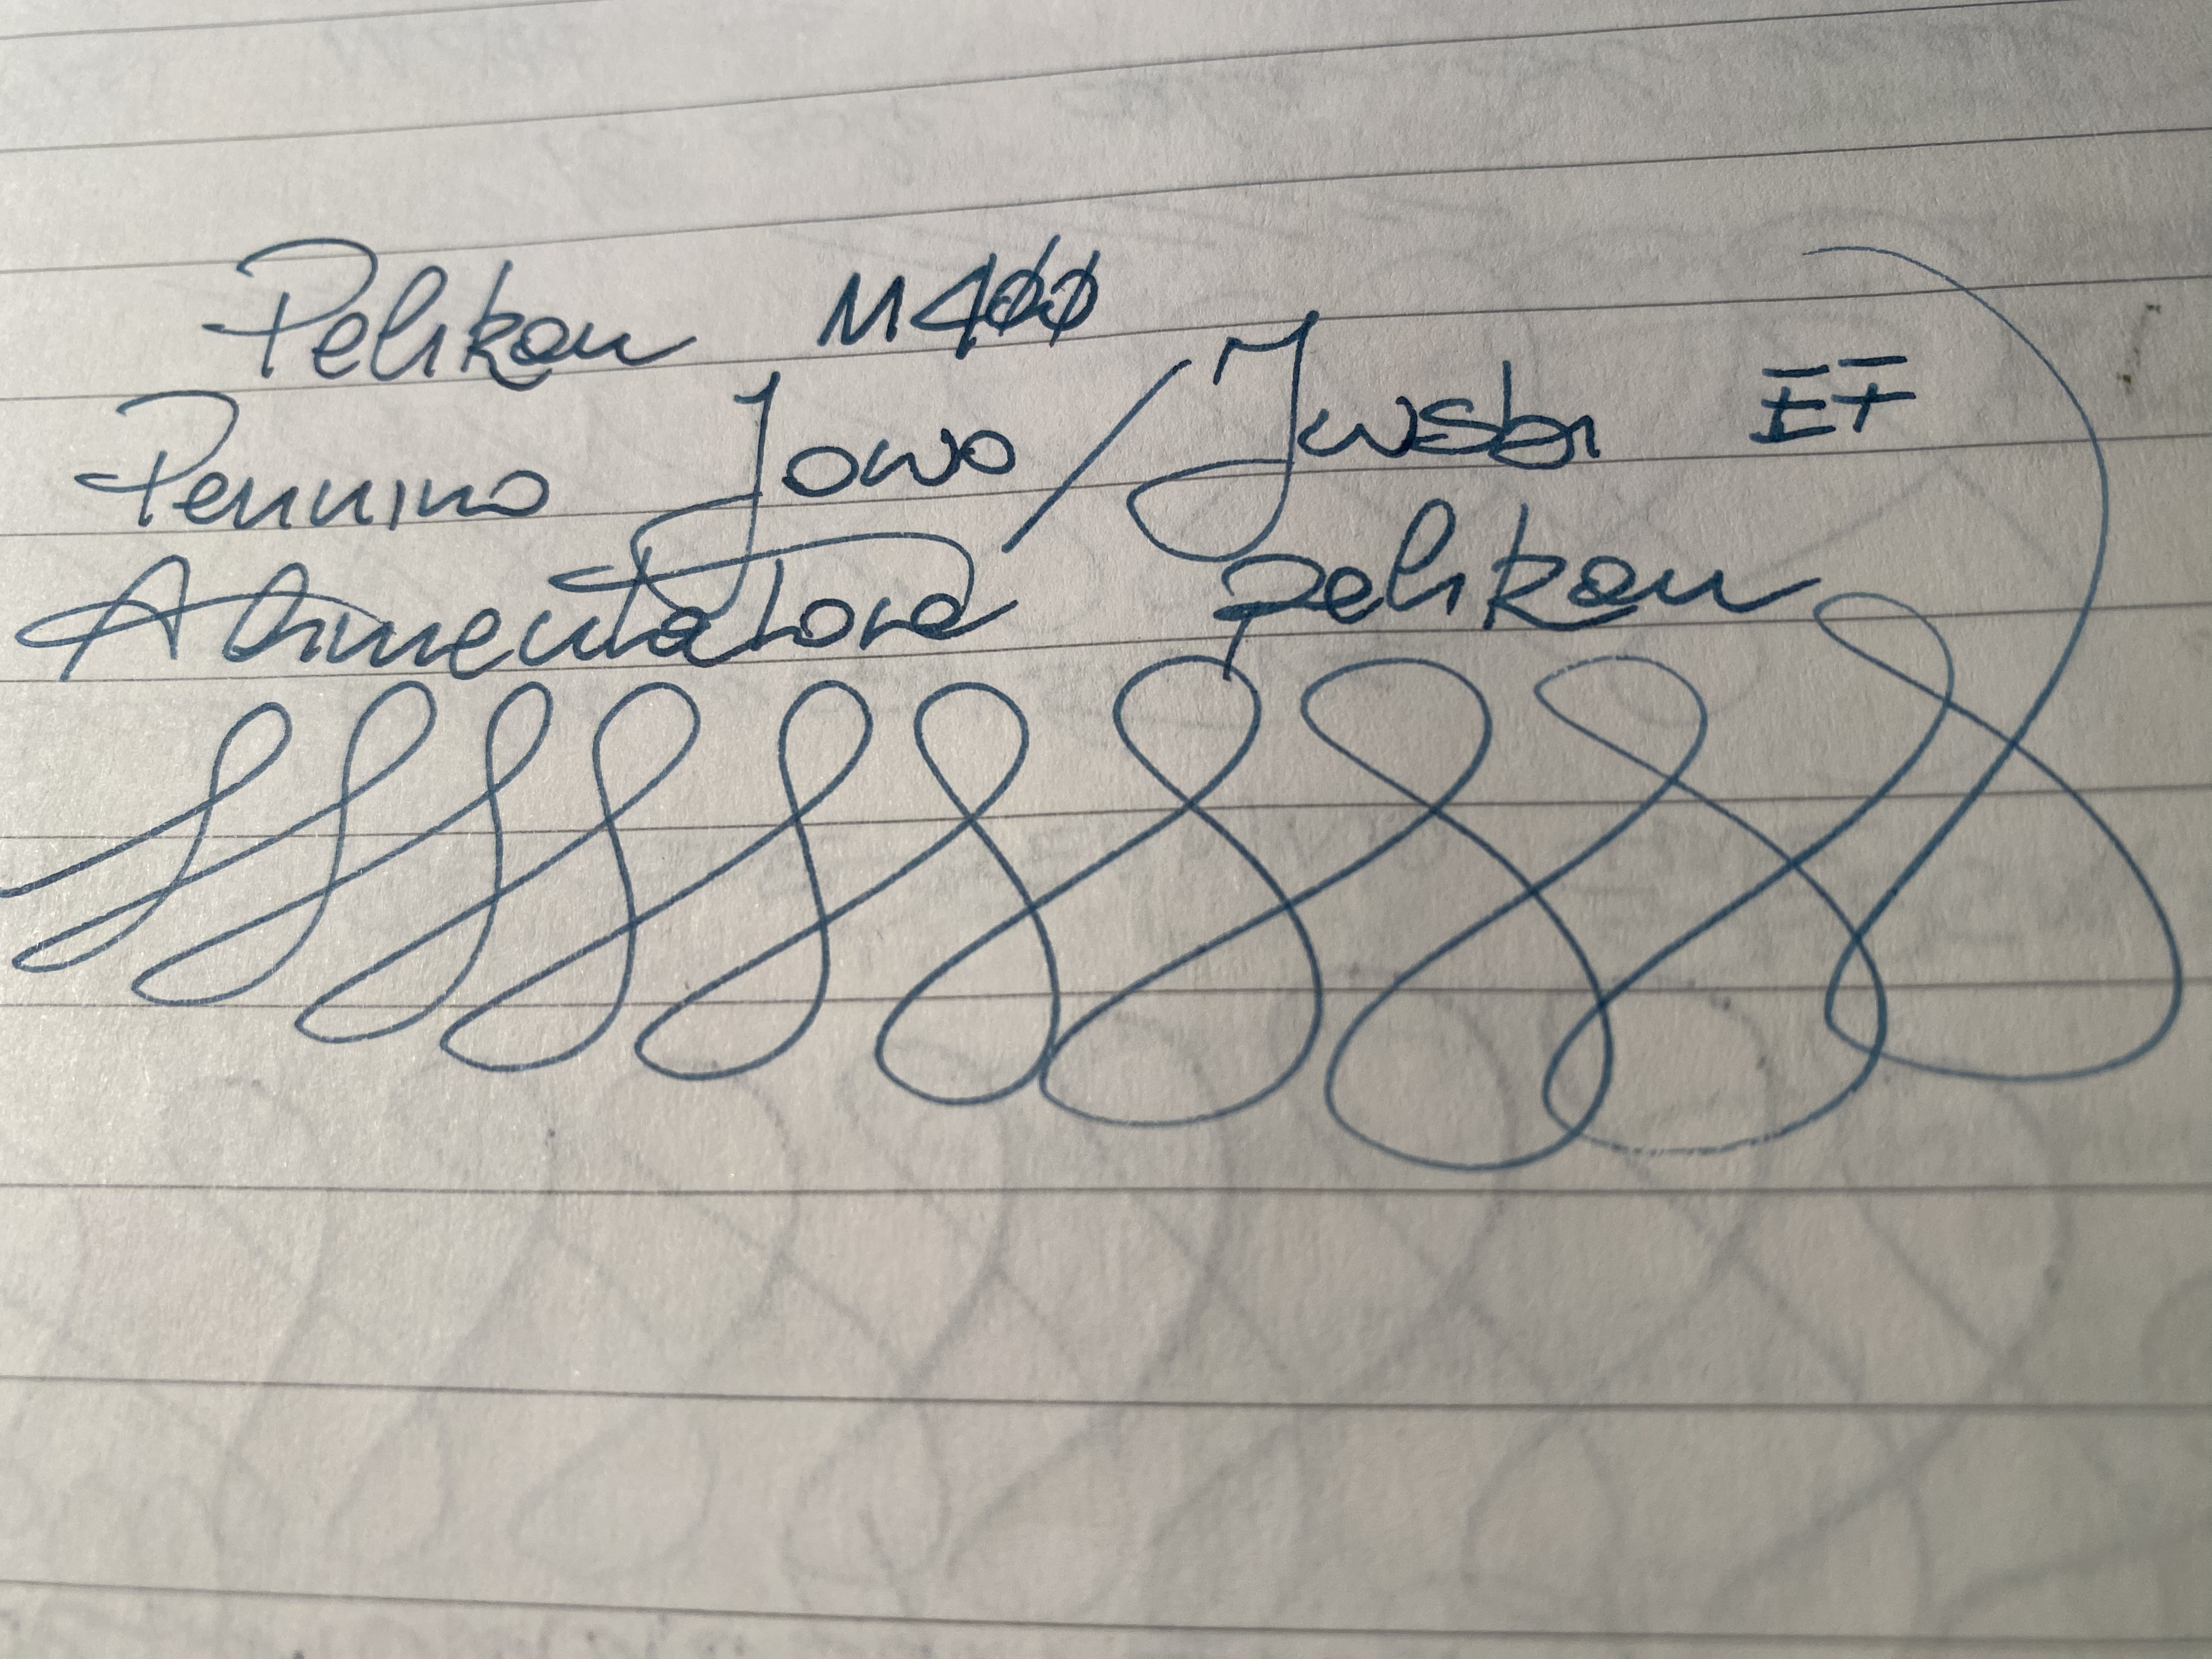 Pelikan M400
Pennino Jowo / Twsbi EF
Alimentatore pelikan